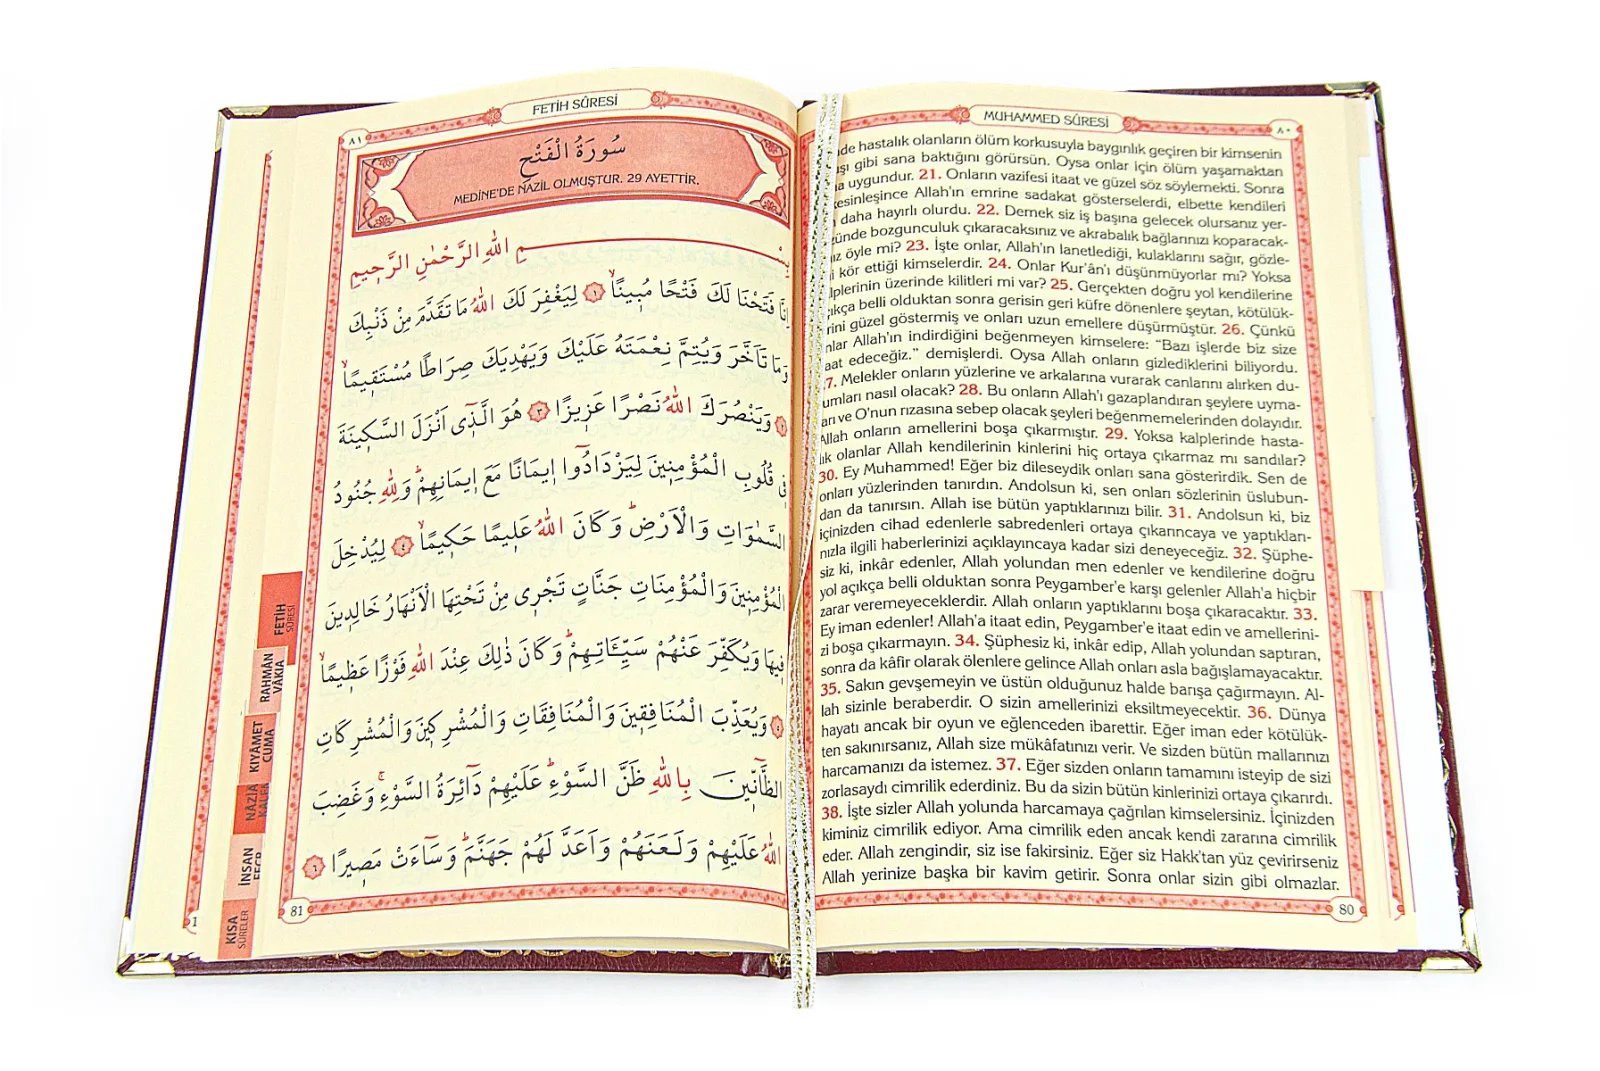 FETİH SÛRESİ
٨١
سُورَةُ الْفَتْحِ
MEDİNE'DE NAZİL OLMUŞTUR. 29 AYETTİR.
بِسْمِ اللهِ الرَّحْمٰنِ الرَّحِيمِ
اِنَّا فَتَحْنَا لَكَ فَتْحًا مُبِينًاۙ ١ لِيَغْفِرَ لَكَ اللهُ مَا تَقَدَّمَ مِنْ ذَنْبِكَ
وَمَا تَاَخَّرَ وَيُتِمَّ نِعْمَتَهُ عَلَيْكَ وَيَهْدِيَكَ صِرَاطًا مُسْتَقِيمًاۙ
٢ وَيَنْصُرَكَ اللهُ نَصْرًا عَزِيزًا ٣ هُوَ الَّذِى اَنْزَلَ السَّكِينَةَ
فِى قُلُوبِ الْمُؤْمِنِينَ لِيَزْدَادُوا اِيمَانًا مَعَ اِيمَانِهِمْۜ وَلِلهِ جُنُودُ
السَّمٰوَاتِ وَالْاَرْضِۜ وَكَانَ اللهُ عَلِيمًا حَكِيمًاۙ ٤ لِيُدْخِلَ
الْمُؤْمِنِينَ وَالْمُؤْمِنَاتِ جَنَّاتٍ تَجْرِى مِنْ تَحْتِهَا الْاَنْهَارُ خَالِدِينَ
فِيهَا وَيُكَفِّرَ عَنْهُمْ سَيِّـَٔاتِهِمْۜ وَكَانَ ذٰلِكَ عِنْدَ اللهِ فَوْزًا عَظِيمًاۙ
٥ وَيُعَذِّبَ الْمُنَافِقِينَ وَالْمُنَافِقَاتِ وَالْمُشْرِكِينَ وَالْمُشْرِكَاتِ
الظَّٓانِّينَ بِاللهِ ظَنَّ السَّوْءِۜ عَلَيْهِمْ دَٓائِرَةُ السَّوْءِۚ وَغَضِبَ
اللهُ عَلَيْهِمْ وَلَعَنَهُمْ وَاَعَدَّ لَهُمْ جَهَنَّمَۜ وَسَٓاءَتْ مَصِيرًا ٦
81
FETİH
SÛRESİ
RAHMÂN
VÂKIA
KIYÂMET
CUMA
NÂZİA
KALEM
İNSAN
FECR
KISA
SÛRELER
MUHAMMED SÛRESİ
٨٠
de hastalık olanların ölüm korkusuyla baygınlık geçiren bir kimsenin
gibi sana baktığını görürsün. Oysa onlar için ölüm yaşamaktan
uygundur. 21. Onların vazifesi itaat ve güzel söz söylemekti. Sonra
kesinleşince Allah'ın emrine sadakat gösterselerdi, elbette kendileri
daha hayırlı olurdu. 22. Demek siz iş başına gelecek olursanız yer-
bozgunculuk çıkaracaksınız ve akrabalık bağlarınızı koparacak-
öyle mi? 23. İşte onlar, Allah'ın lanetlediği, kulaklarını sağır, gözle-
kör ettiği kimselerdir. 24. Onlar Kur'ân'ı düşünmüyorlar mı? Yoksa
kalplerinin üzerinde kilitleri mi var? 25. Gerçekten doğru yol kendilerine
açıkça belli olduktan sonra gerisin geri küfre dönenlere şeytan, kötülük-
lerini güzel göstermiş ve onları uzun emellere düşürmüştür. 26. Çünkü
onlar Allah'ın indirdiğini beğenmeyen kimselere: "Bazı işlerde biz size
itaat edeceğiz." demişlerdi. Oysa Allah onların gizlediklerini biliyordu.
27. Melekler onların yüzlerine ve arkalarına vurarak canlarını alırken du-
rumları nasıl olacak? 28. Bu onların Allah'ı gazaplandıran şeylere uyma-
ları ve O'nun rızasına sebep olacak şeyleri beğenmemelerinden dolayıdır.
Allah onların amellerini boşa çıkarmıştır. 29. Yoksa kalplerinde hasta-
lık olanlar Allah kendilerinin kinlerini hiç ortaya çıkarmaz mı sandılar?
30. Ey Muhammed! Eğer biz dileseydik onları sana gösterirdik. Sen de
onları yüzlerinden tanırdın. Andolsun ki, sen onları sözlerinin üslubun-
dan da tanırsın. Allah ise bütün yaptıklarınızı bilir. 31. Andolsun ki, biz
içinizden cihad edenlerle sabredenleri ortaya çıkarıncaya ve yaptıkları-
nızla ilgili haberlerinizi açıklayıncaya kadar sizi deneyeceğiz. 32. Şüphe-
siz ki, inkâr edenler, Allah yolundan men edenler ve kendilerine doğru
yol açıkça belli olduktan sonra Peygamber'e karşı gelenler Allah'a hiçbir
zarar veremeyeceklerdir. Allah onların yaptıklarını boşa çıkaracaktır. 33.
Ey iman edenler! Allah'a itaat edin, Peygamber'e itaat edin ve amellerini-
zi boşa çıkarmayın. 34. Şüphesiz ki, inkâr edip, Allah yolundan saptıran,
sonra da kâfir olarak ölenlere gelince Allah onları asla bağışlamayacaktır.
35. Sakın gevşemeyin ve üstün olduğunuz halde barışa çağırmayın. Al-
lah sizinle beraberdir. O sizin amellerinizi eksiltmeyecektir. 36. Dünya
hayatı ancak bir oyun ve eğlenceden ibarettir. Eğer iman eder kötülük-
ten sakınırsanız, Allah size mükâfatınızı verir. Ve sizden bütün mallarınızı
harcamanızı da istemez. 37. Eğer sizden onların tamamını isteyip de sizi
zorlasaydı cimrilik ederdiniz. Bu da sizin bütün kinlerinizi ortaya çıkarırdı.
38. İşte sizler Allah yolunda harcamaya çağrılan kimselersiniz. İçinizden
kiminiz cimrilik ediyor. Ama cimrilik eden ancak kendi zararına cimrilik
eder. Allah zengindir, siz ise fakirsiniz. Eğer siz Hakk'tan yüz çevirirseniz
Allah yerinize başka bir kavim getirir. Sonra onlar sizin gibi olmazlar.
80